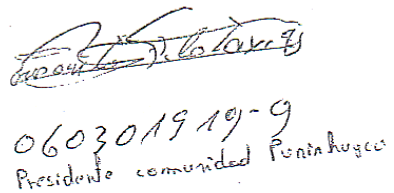 060301919-9
Presidente comunidad Puninhuayco